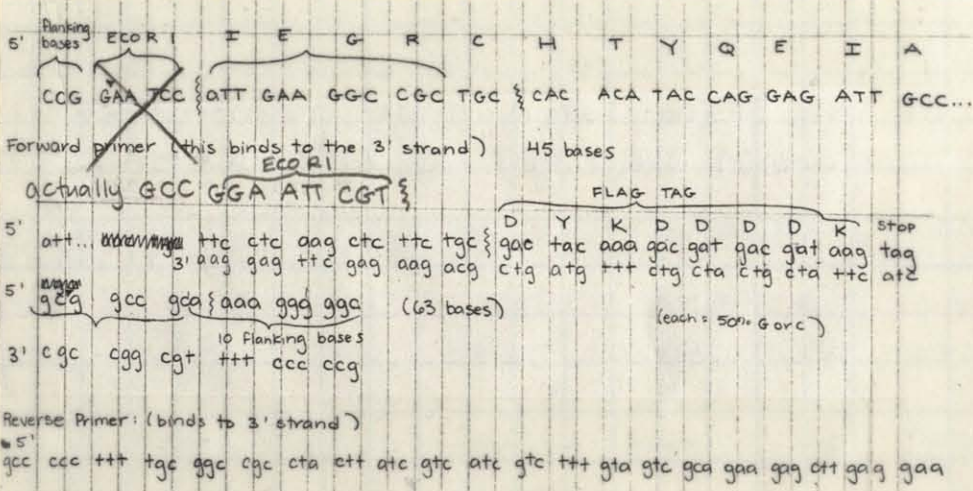 Flanking bases ECORI I E G R C H T Y Q E I A
5' CCG GAA TCC { aTT GAA GGC CGC TGC { CAC ACA TAC CAG GAG ATT GCC...
Forward primer (this binds to the 3' strand) 45 bases
ECORI
actually GCC GGA ATT CGT {
FLAG TAG
D Y K D D D D K STOP
5' att... ttc ctc aag ctc ttc tgc { gac tac aaa gac gat gac gat aag tag
3' aag gag ttc gag aag acg ctg atg ttt ctg cta ctg cta ttc atc
5' gcg gcc gca { aaa ggg ggc (63 bases) (each = 50% G or C)
10 flanking bases
3' cgc cgg cgt ttt ccc ccg
Reverse Primer: (binds to 3' strand)
5'
gcc ccc ttt tgc ggc cgc cta ctt atc gtc atc gtc ttt gta gtc gca gaa gag ctt gag gaa